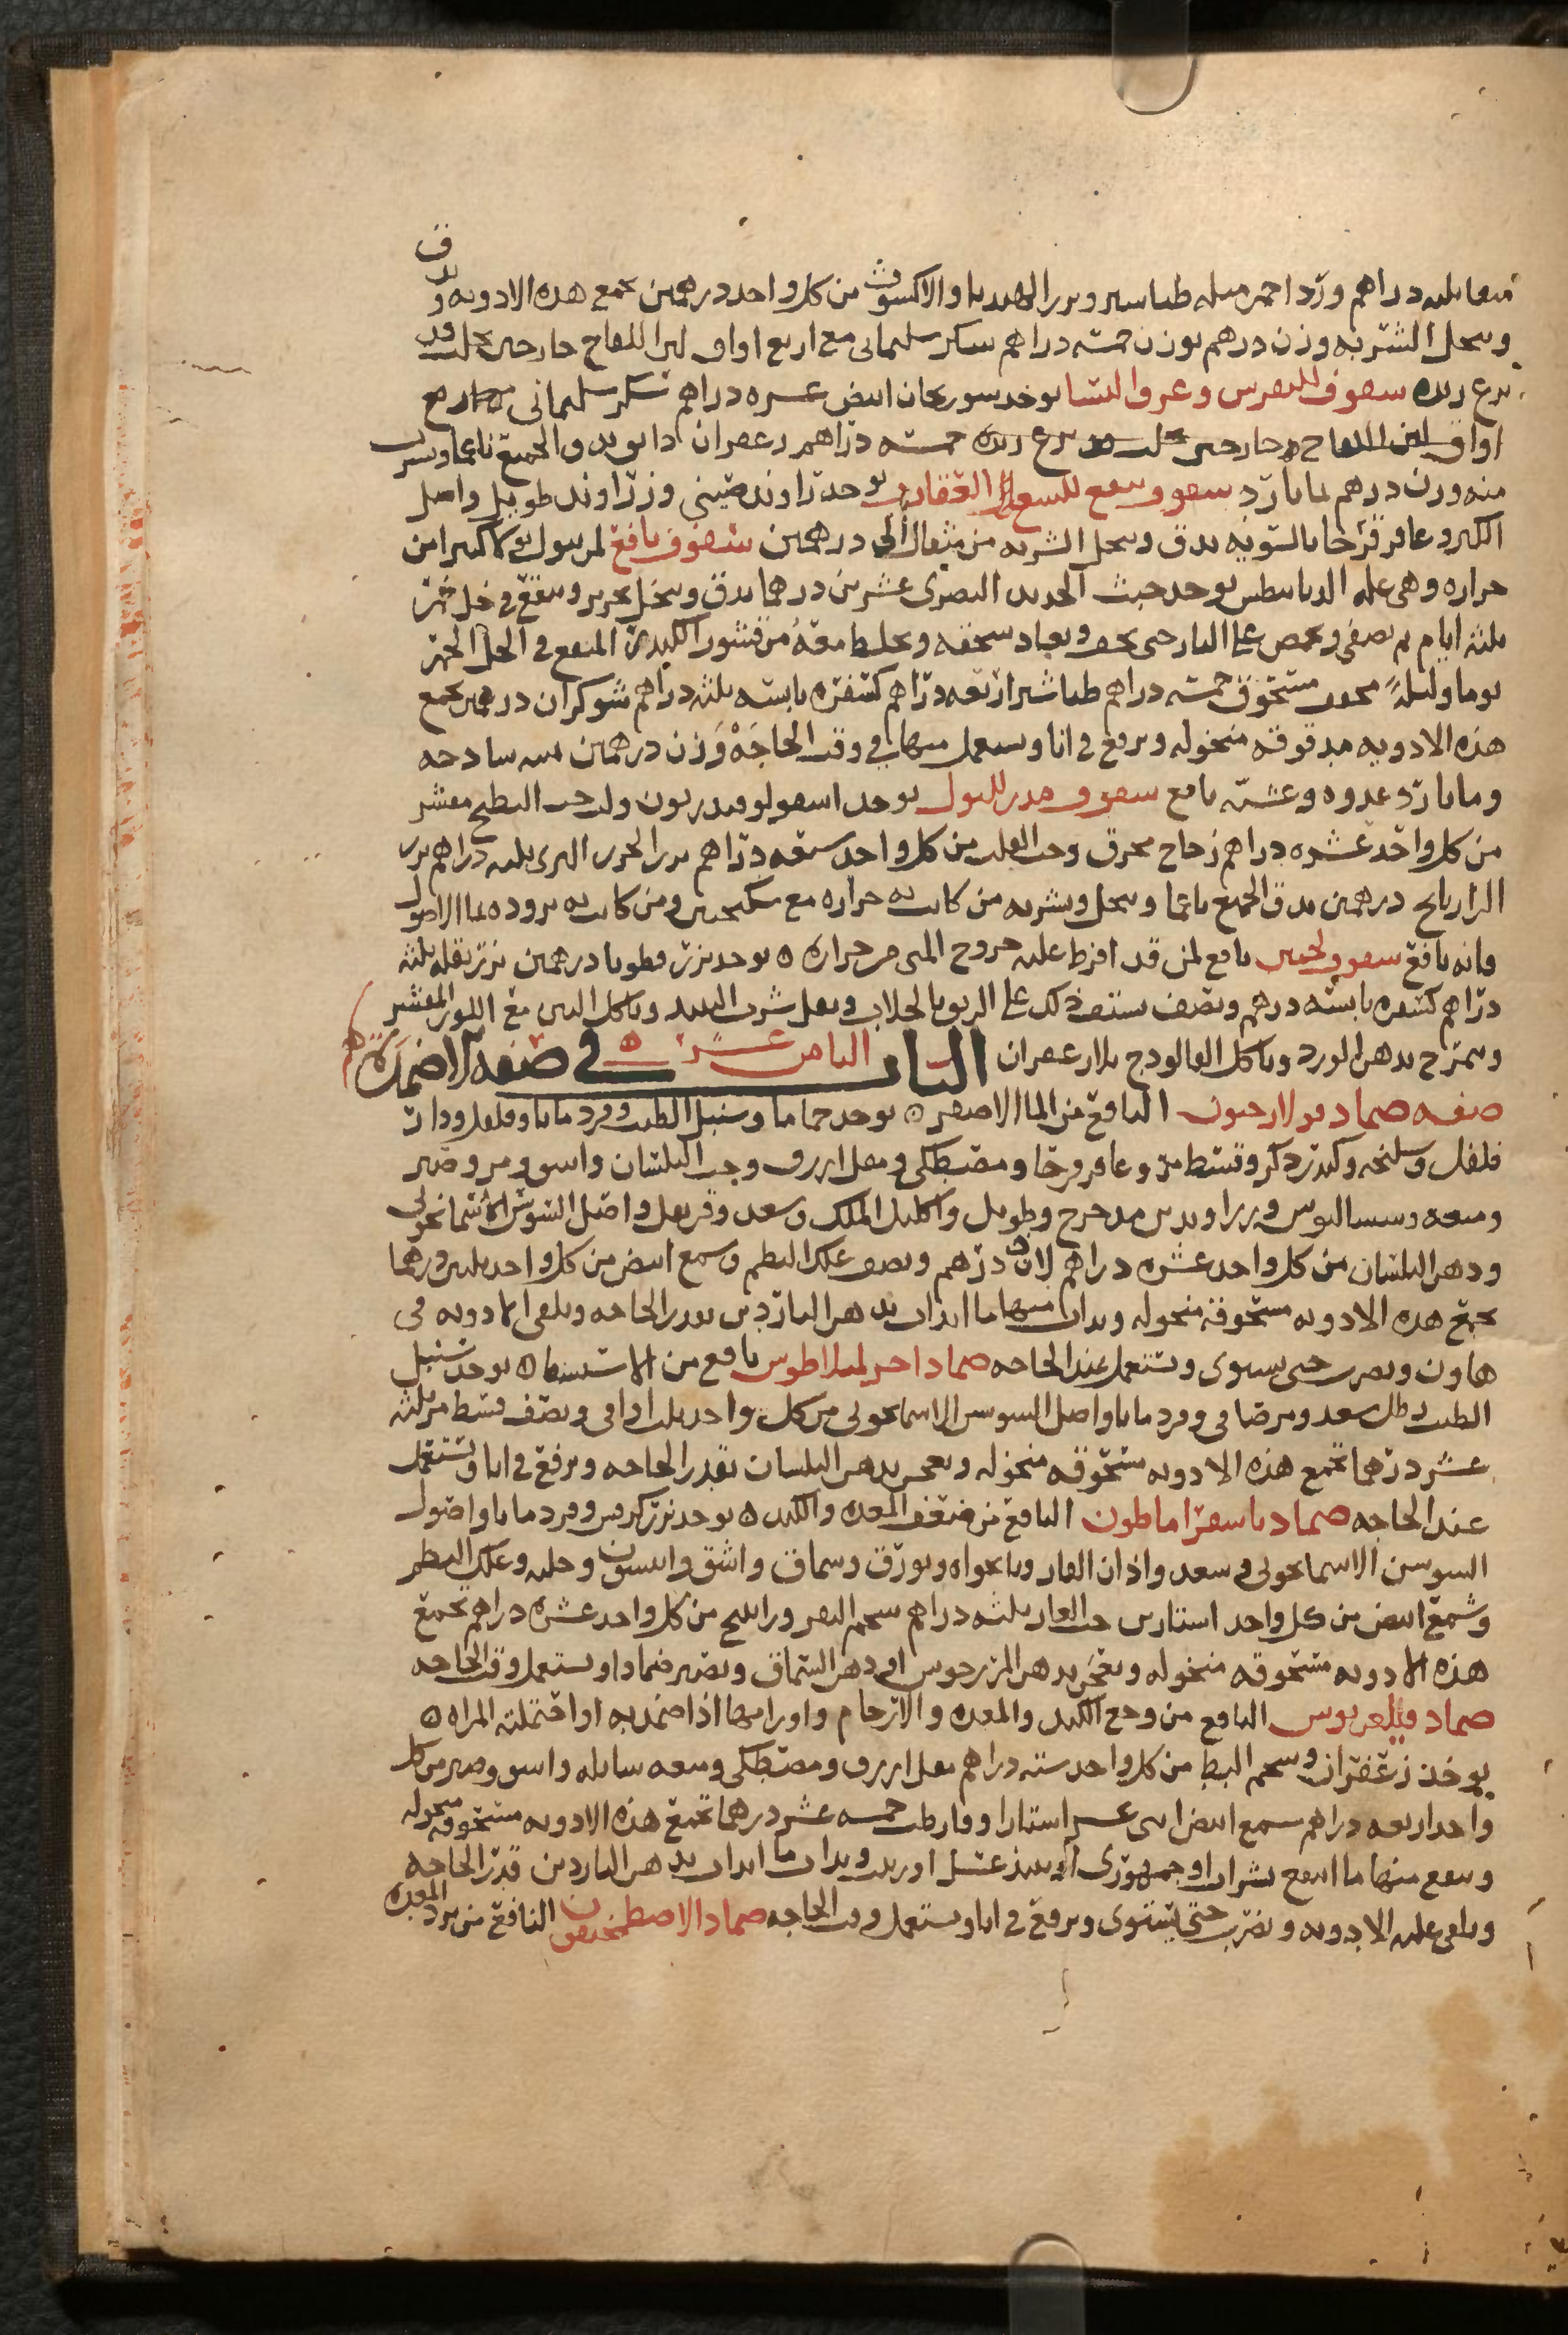 دراهم ورد احمر مثله طباسير وبزر الهندبا والاكسوث من كل واحد درهمين يجمع هذه الادويه
وينخل الشربه وزن درهم بوزن خمسه دراهم سكر سليمانى مع اربع اواق لبن اللقاح حار حين يحلب
سفوف للنقرس وعرق النسا يوخذ سورنجان ابيض عشره دراهم سكر سليمانى
اواق لبن اللقاح حار حين خمسه دراهم زعفران دانق يدق الجميع ناعما ويشرب
منه وزن درهم بما بارد سفوف ينفع للسع العقارب يوخذ زراوند صينى وزراوند طويل واصل
الكبر وعاقرقرحا بالسويه يدق وينخل الشربه من مثقال الى درهمين سفوف نافع لمن يبول بولا كثيرا من
حراره وهى عله الديابيطس يوخذ خبث الحديد البصرى عشرين درهما يدق وينخل بحرير وينقع فى خل خمر
ثلثه ايام ثم يصفى ويحمص على النار حتى يجف ويعاد سحقه ويخلط معه من قشور الكندر المنقع فى الخل الخمر
يوما وليله مجفف مسحوق خمسه دراهم طباشير اربعه دراهم كسفره يابسه ثلثه دراهم شوكران درهمين يجمع
هذه الادويه مدقوقه منخوله ويرفع فى انا ويستعمل منها فى وقت الحاجه وزن درهمين
وما بارد غدوه وعشيه نافع سفوف مدر للبول يوخذ اسقولوقندريون ولب حب البطيخ مقشر
من كل واحد عشره دراهم زجاج محرق وحب القلت من كل واحد سبعه دراهم بزر الجزر البرى ثلثه دراهم بزر
الرازيانج درهمين يدق الجميع ناعما وينخل ويشربه من كانت به حراره مع سكنجبين ومن كانت به بروده بما الاصول
فانه نافع سفوف نافع لمن قد افرط عليه خروج المنى من حراره ه يوخذ بزر قطونا درهمين بزر بقله ثلثه
دراهم كسفره يابسه درهم ونصف يستف ذلك على الريق بالجلاب ويقل شرب النبيذ وياكل التين مع اللوز المقشر
ويمزج بدهن الورد وياكل الفالوذج بلا زعفران الباب الثامن عشر ه فى صفه الاضمده
صفه ضماد بولارحيون النافع من الما الاصفر ه يوخذ حماما وسنبل الطيب وقردمانا وفلفل ودار
فلفل وسليخه وكندر ذكر وقسط مر وعاقرقرحا ومصطكى ومقل ازرق وحب البلسان واشق ومر وصبر
وميعه وسساليوس وزراوندين مدحرج وطويل واكليل الملك وسعد وقرنفل واصل السوسن الاسمانجونى
ودهن البلسان من كل واحد عشره دراهم لاذن درهم ونصف علك البطم وشمع ابيض من كل واحد ثلثين درهما
تجمع هذه الادويه مسحوقه منخوله ويذاب منها ما انذاب بدهن الناردين بقدر الحاجه ويلقى الادويه فى
هاون ويضرب حتى يستوى ويستعمل عند الحاجه ضماد اخر نافع من الاستسقا ه يوخذ سنبل
الطيب وقردمانا واصل السوسن الاسمانجونى من كل واحد ثلث اواقى ونصف قسط مر ثلثه
عشر درهما تجمع هذه الادويه مسحوقه منخوله ويعجن بدهن البلسان بقدر الحاجه ويرفع فى انا ويستعمل
عند الحاجه ضماد النافع من ضعف المعده والكبد ه يوخذ بزر كرفس وقردمانا واصول
السوسن الاسمانجونى وسعد واذان الفار ونانخواه وبورق وسماق واشق وانيسون وحلبه وعلك البطم
وشمع ابيض من كل واحد استارين حب الغار ثلثه دراهم شحم البقر وراتينج من كل واحد عشره دراهم تجمع
هذه الادويه مسحوقه منخوله ويعجن بدهن المرزنجوش او دهن السماق ويصير ضمادا ويستعمل وقت الحاجه
ضماد النافع من وجع الكبد والمعده والارحام واورامها اذا ضمد به او احتملته المراه ه
يوخذ زعفران وشحم البط من كل واحد سته دراهم مقل ازرق ومصطكى وميعه سايله واشق وصبر من كل
واحد اربعه دراهم شمع ابيض اثنى عشر استارا خمسه عشر درهما تجمع هذه الادويه مسحوقه منخوله
وينقع منها ما انتقع بشراب او جمهورى او نبيذ عسل او زبيب ويذاب ما انذاب بدهن الناردين قدر الحاجه
ويلقى عليه الادويه ويضرب حتى يستوى ويرفع فى انا ويستعمل وقت الحاجه ضماد النافع من برد المعده